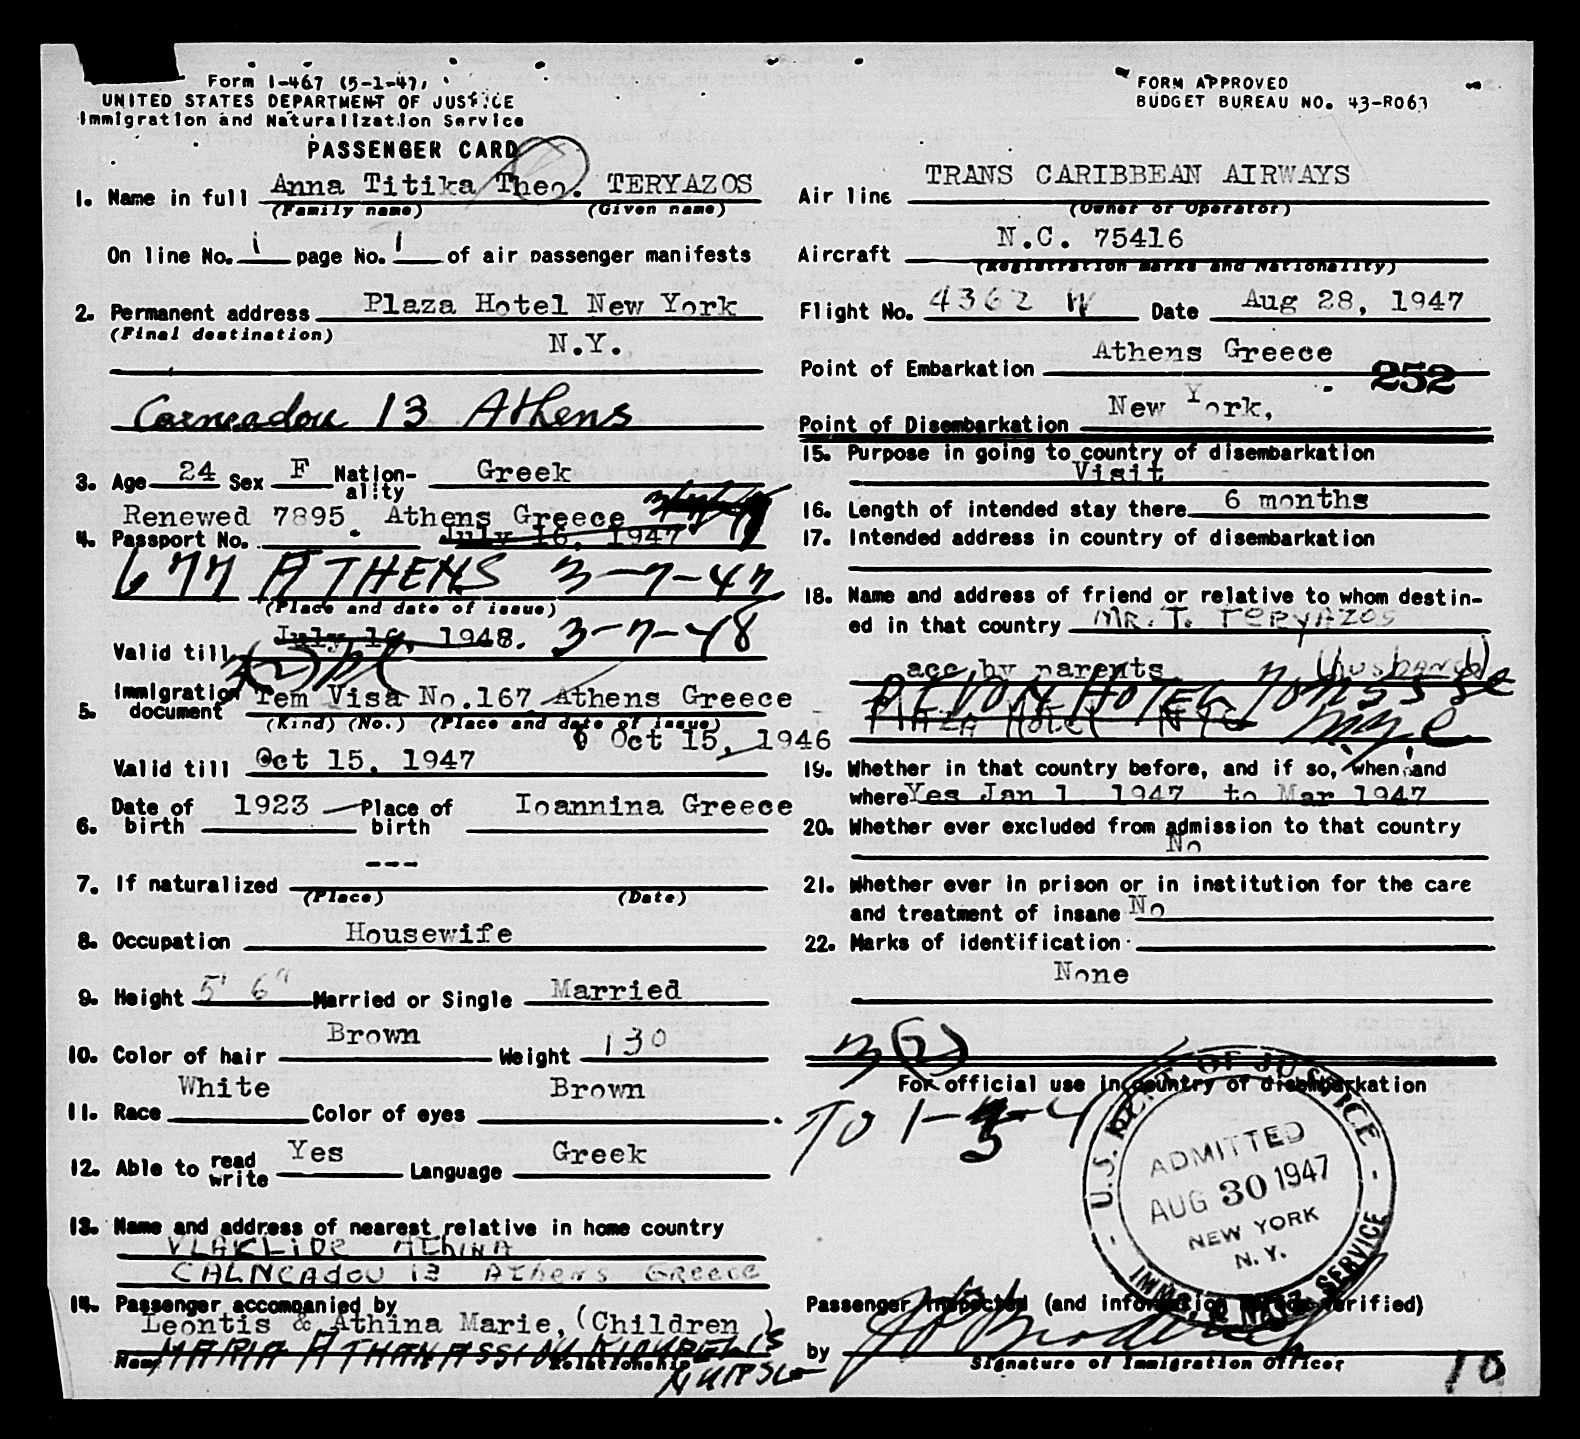 Form I-467 (5-1-47)
UNITED STATES DEPARTMENT OF JUSTICE
Immigration and Naturalization Service
PASSENGER CARD
FORM APPROVED
BUDGET BUREAU NO. 43-R063
1. Name in full Anna Titika Theo. TERYAZOS
(Family name) (Given name)
On line No. 1 page No. 1 of air passenger manifests
2. Permanent address Plaza Hotel New York
(Final destination) N.Y.
13 Athens
3. Age 24 Sex F Nation-ality Greek
Renewed 7895 Athens Greece
4. Passport No. July 16, 1947
677 ATHENS 3-7-47
(Place and date of issue)
July 16, 1948. 3-7-48
Valid till
5. Immigration document Tem Visa No.167 Athens Greece
(Kind) (No.) (Place and date of issue)
Oct 15, 1946
Valid till Oct 15, 1947
6. Date of birth 1923 Place of birth Ioannina Greece
---
7. If naturalized
(Place) (Date)
8. Occupation Housewife
9. Height 5' 6" Married or Single Married
10. Color of hair Brown Weight 130
11. Race White Color of eyes Brown
12. Able to read write Yes Language Greek
13. Name and address of nearest relative in home country
13 Athens Greece
14. Passenger accompanied by
Leontis & Athina Marie, (Children )
MARIA
Name Relationship
Air line TRANS CARIBBEAN AIRWAYS
(Owner or Operator)
Aircraft N.C. 75416
(Registration marks and Nationality)
Flight No. 4362 W Date Aug 28, 1947
Point of Embarkation Athens Greece
252
Point of Disembarkation New York,
15. Purpose in going to country of disembarkation
Visit
16. Length of intended stay there 6 months
17. Intended address in country of disembarkation
18. Name and address of friend or relative to whom destin-
ed in that country MR. T. TERYAZOS
acc by parents (Husband)
HOTEL
PLAZA Hotel NYC
19. Whether in that country before, and if so, when and
where Yes Jan 1 1947 to Mar 1947
20. Whether ever excluded from admission to that country
No
21. Whether ever in prison or in institution for the care
and treatment of insane No
22. Marks of identification
None
3(2)
For official use in country of disembarkation
TO
U.S. DEPT. OF JUSTICE
ADMITTED
AUG 30 1947
NEW YORK
N.Y.
IMMIG. & NAT. SERVICE
Passenger inspected (and information above verified)
by
Signature of Immigration Officer
10